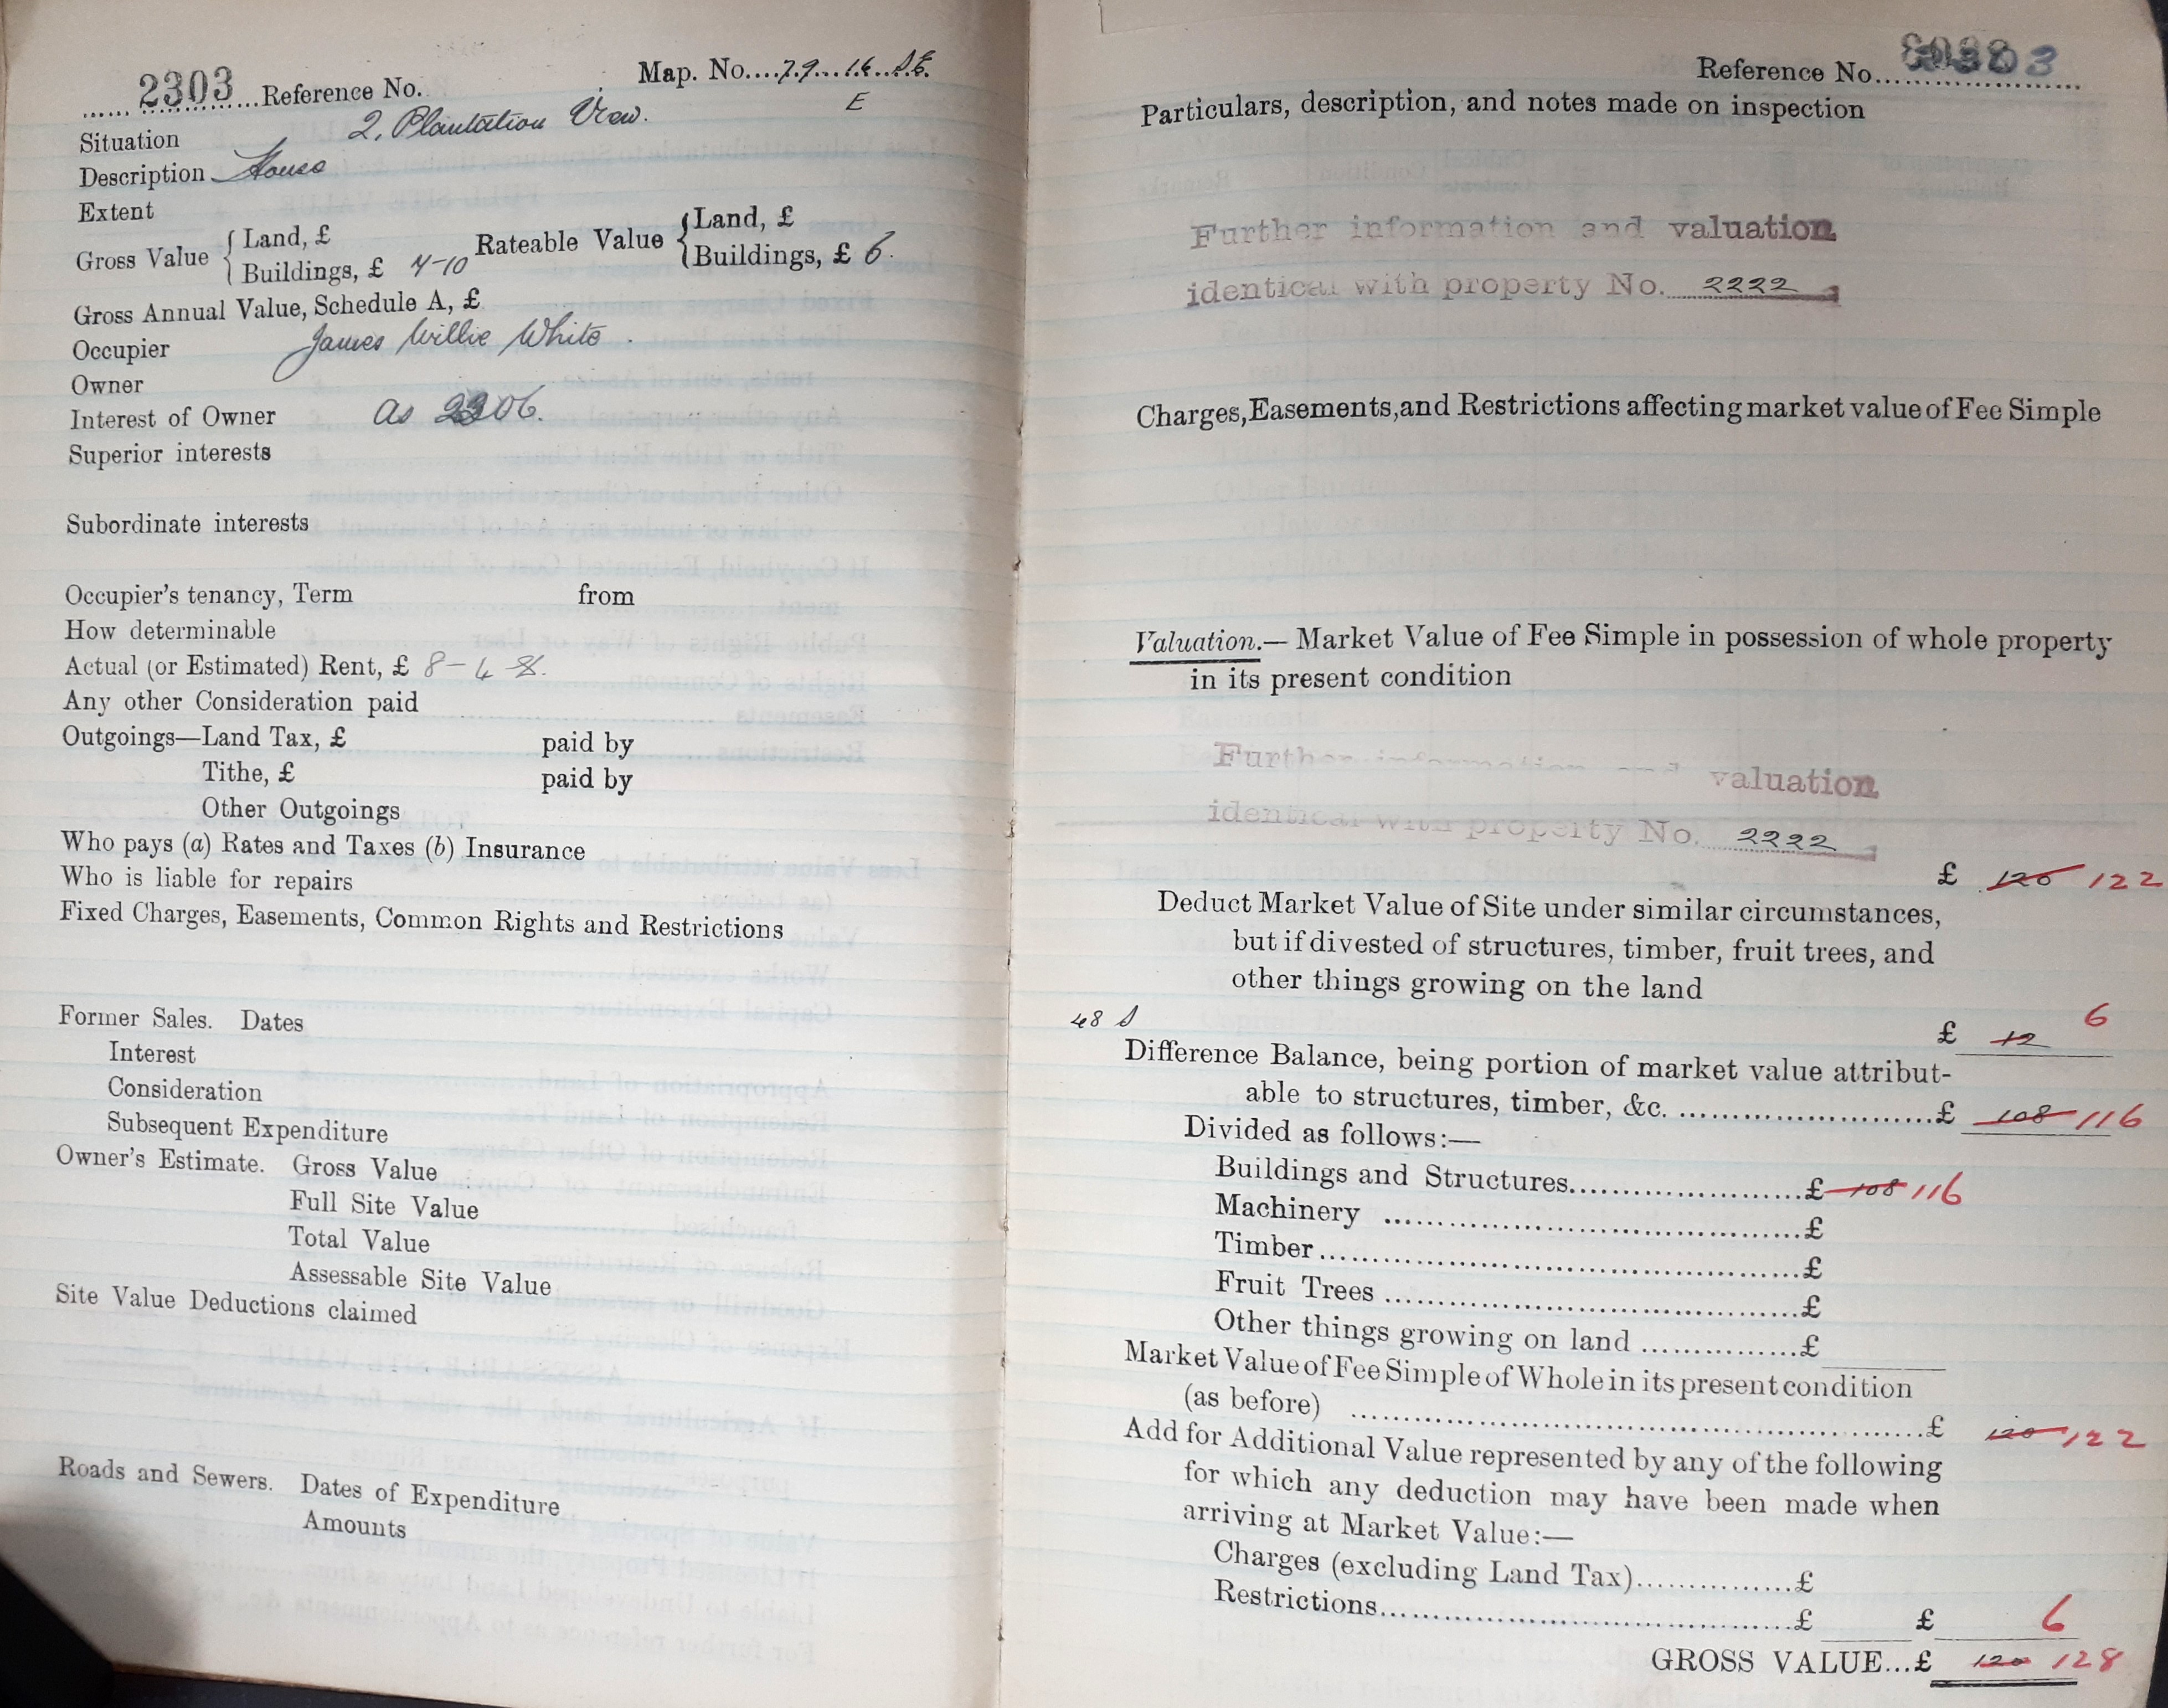 2303 Reference No. Map. No....79...16...S.E.
E
Situation 2, Plantation View.
Description House
Extent
Gross Value { Land, £
Buildings, £ 7-10 Rateable Value { Land, £
Buildings, £ 6.
Gross Annual Value, Schedule A, £
Occupier James Willie White.
Owner
Interest of Owner as 2306.
Superior interests
Subordinate interests
Occupier's tenancy, Term from
How determinable
Actual (or Estimated) Rent, £ 8-4-8.
Any other Consideration paid
Outgoings—Land Tax, £ paid by
Tithe, £ paid by
Other Outgoings
Who pays (a) Rates and Taxes (b) Insurance
Who is liable for repairs
Fixed Charges, Easements, Common Rights and Restrictions
Former Sales. Dates
Interest
Consideration
Subsequent Expenditure
Owner's Estimate. Gross Value
Full Site Value
Total Value
Assessable Site Value
Site Value Deductions claimed
Roads and Sewers. Dates of Expenditure
Amounts
Reference No. 2303
Particulars, description, and notes made on inspection
Further information and valuation
identical with property No. 2222
Charges, Easements, and Restrictions affecting market value of Fee Simple
Valuation.— Market Value of Fee Simple in possession of whole property
in its present condition
Further information and valuation
identical with property No. 2222
£ 120 122
Deduct Market Value of Site under similar circumstances,
but if divested of structures, timber, fruit trees, and
other things growing on the land
48 S £ 12 6
Difference Balance, being portion of market value attribut-
able to structures, timber, &c. ...........................£ 108 116
Divided as follows:—
Buildings and Structures........................£ 108 116
Machinery ..........................................£
Timber................................................£
Fruit Trees ..........................................£
Other things growing on land ...............£
Market Value of Fee Simple of Whole in its present condition
(as before) ..........................................................£ 120 122
Add for Additional Value represented by any of the following
for which any deduction may have been made when
arriving at Market Value:—
Charges (excluding Land Tax)...............£
Restrictions..........................................£ £ 6
GROSS VALUE...£ 120 128